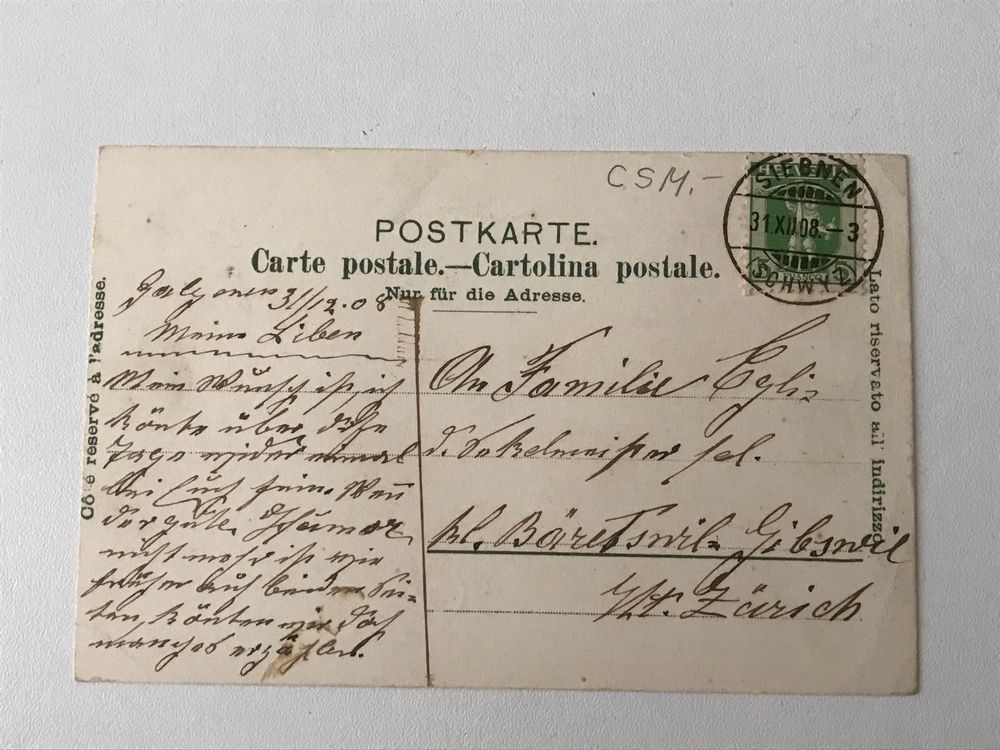 CSM.-
SIEBNEN
31.XII.08.-3
(SCHWYZ)
POSTKARTE.
Carte postale.—Cartolina postale.
Nur für die Adresse.
Côté réservé à l'adresse.
Lato riservato all' indirizzo.
Galgenen 31/12.08
Meine Liben
Mein Wunsch ist, ich
könte über diese
Tage wider einmal
bei Euch sein. Wen
der gute
nicht mehr ist wie
früher auf beiden Sei-
ten, könten wir doch
manches erzählen.
An Familie Egli-
d. Sekelmeister sel.
kl. Bäretswil- Gibswil
Kt. Zürich